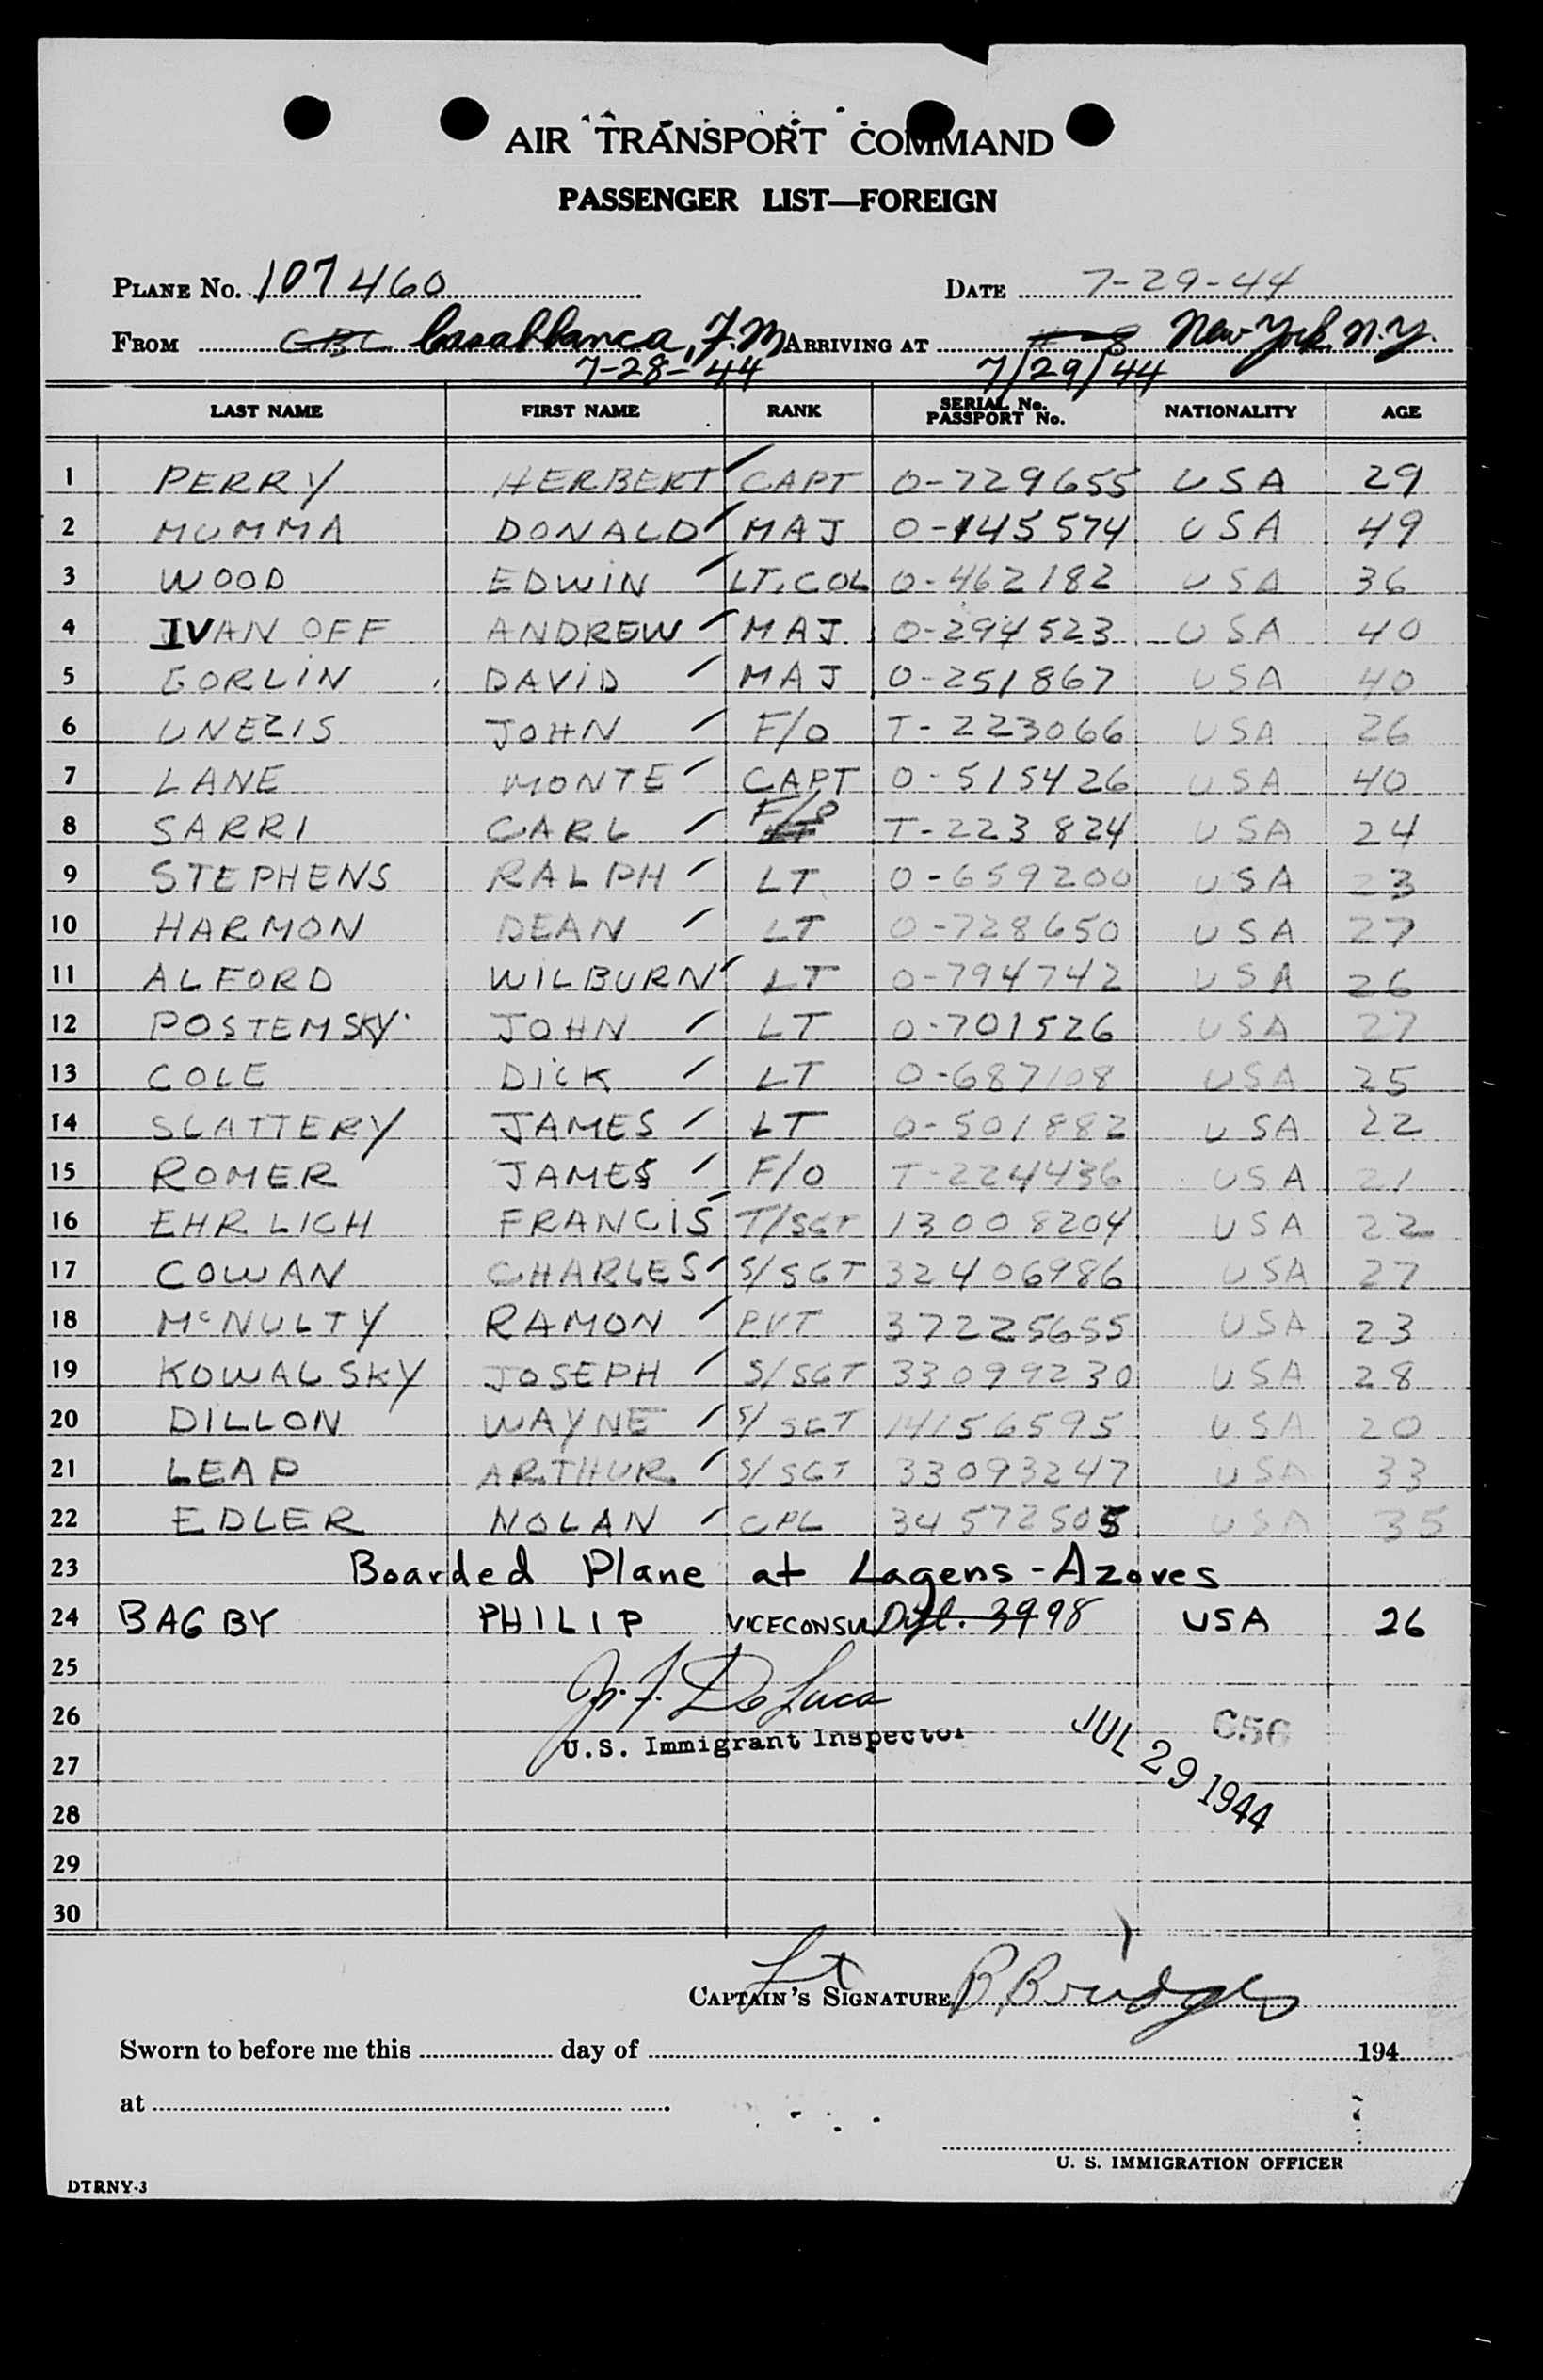 AIR TRANSPORT COMMAND
PASSENGER LIST—FOREIGN
PLANE No. 107460 DATE 7-29-44
FROM CBL Casablanca, F.M. ARRIVING AT New York N.Y.
7-28-44 7/29/44
LAST NAME FIRST NAME RANK SERIAL No. PASSPORT No. NATIONALITY AGE
1 PERRY HERBERT CAPT O-729655 USA 29
2 MUMMA DONALD MAJ O-145574 USA 49
3 WOOD EDWIN LT. COL O-462182 USA 36
4 IVAN OFF ANDREW MAJ. O-294523 USA 40
5 GORLIN DAVID MAJ O-251867 USA 40
6 UNEZIS JOHN F/O T-223066 USA 26
7 LANE MONTE CAPT O-515426 USA 40
8 SARRI CARL F/O T-223824 USA 24
9 STEPHENS RALPH LT O-659200 USA 23
10 HARMON DEAN LT O-728650 USA 27
11 ALFORD WILBURN LT O-794742 USA 26
12 POSTEMSKY JOHN LT O-701526 USA 27
13 COLE DICK LT O-687108 USA 25
14 SLATTERY JAMES LT O-501882 USA 22
15 ROMER JAMES F/O T-224436 USA 21
16 EHRLICH FRANCIS T/SGT 13008204 USA 22
17 COWAN CHARLES S/SGT 32406986 USA 27
18 McNULTY RAMON PVT 37225655 USA 23
19 KOWALSKY JOSEPH S/SGT 33099230 USA 28
20 DILLON WAYNE S/SGT 14156595 USA 20
21 LEAP ARTHUR S/SGT 33093247 USA 33
22 EDLER NOLAN CPL 34572505 USA 35
23 Boarded Plane at Lagens-Azores
24 BAGBY PHILIP VICECONSUL Dipl. 3998 USA 26
25
J. F. De Luca
26 656
U.S. Immigrant Inspector JUL 29 1944
27
28
29
30
Lt
CAPTAIN'S SIGNATURE B Bridges
Sworn to before me this day of 194
at
U. S. IMMIGRATION OFFICER
DTRNY-3